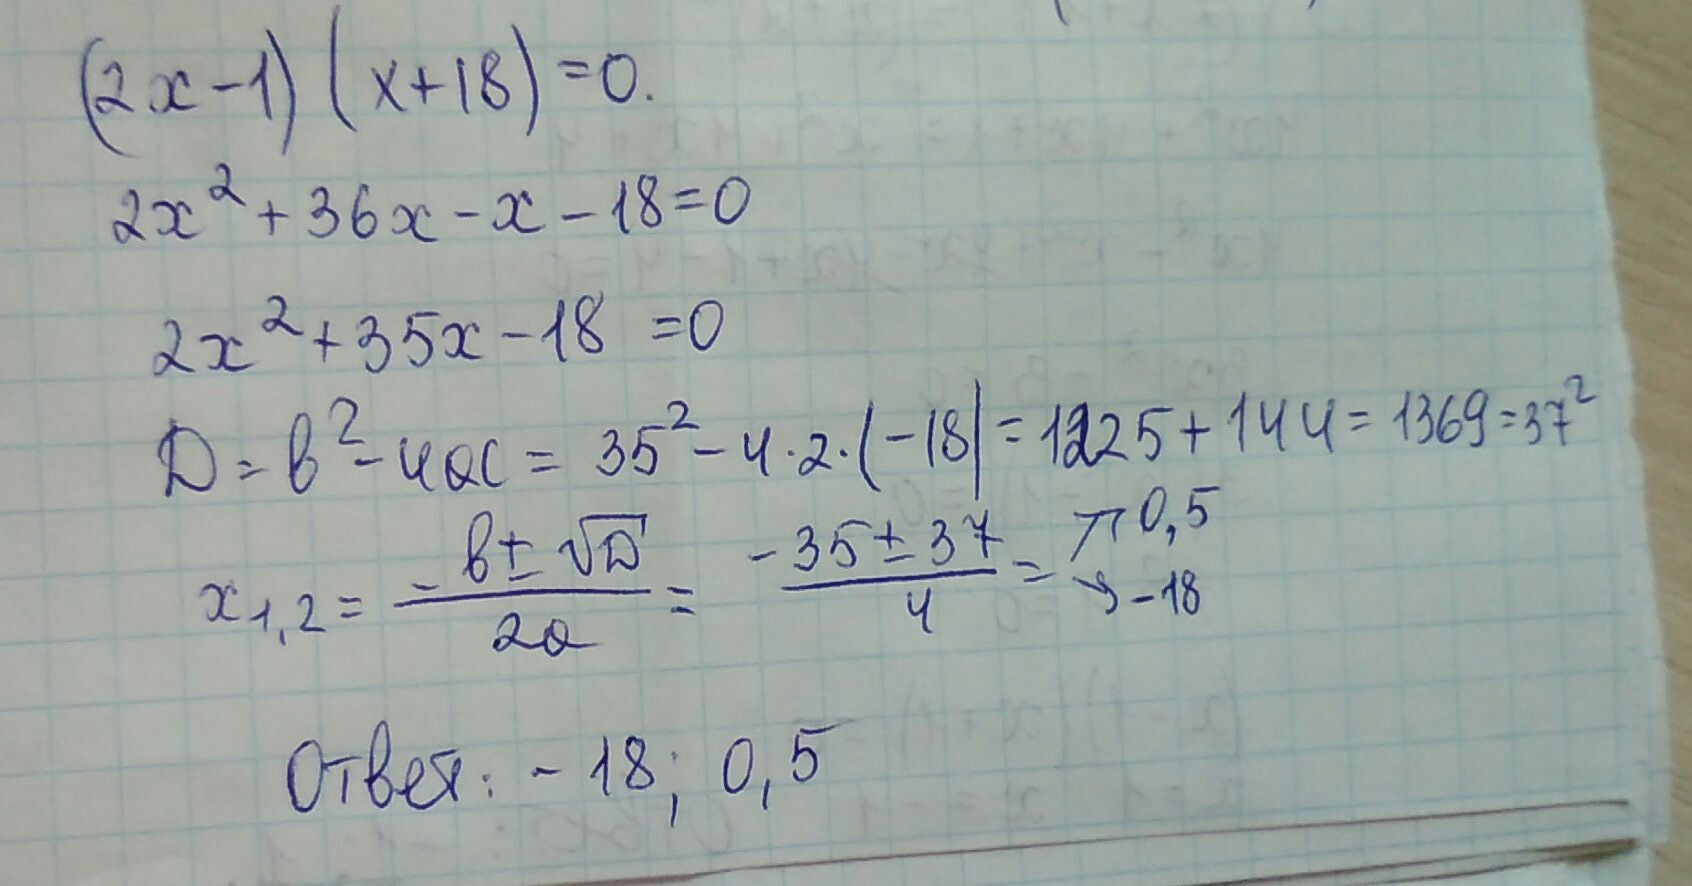 (2x-1)(x+18)=0.
2x²+36x-x-18=0
2x²+35x-18=0
D=b²-4ac=35²-4·2·(-18)=1225+144=1369=37²
x1,2=(-b±√D)/2a=(-35±37)/4= ↗0,5 ↘-18
Ответ: -18; 0,5